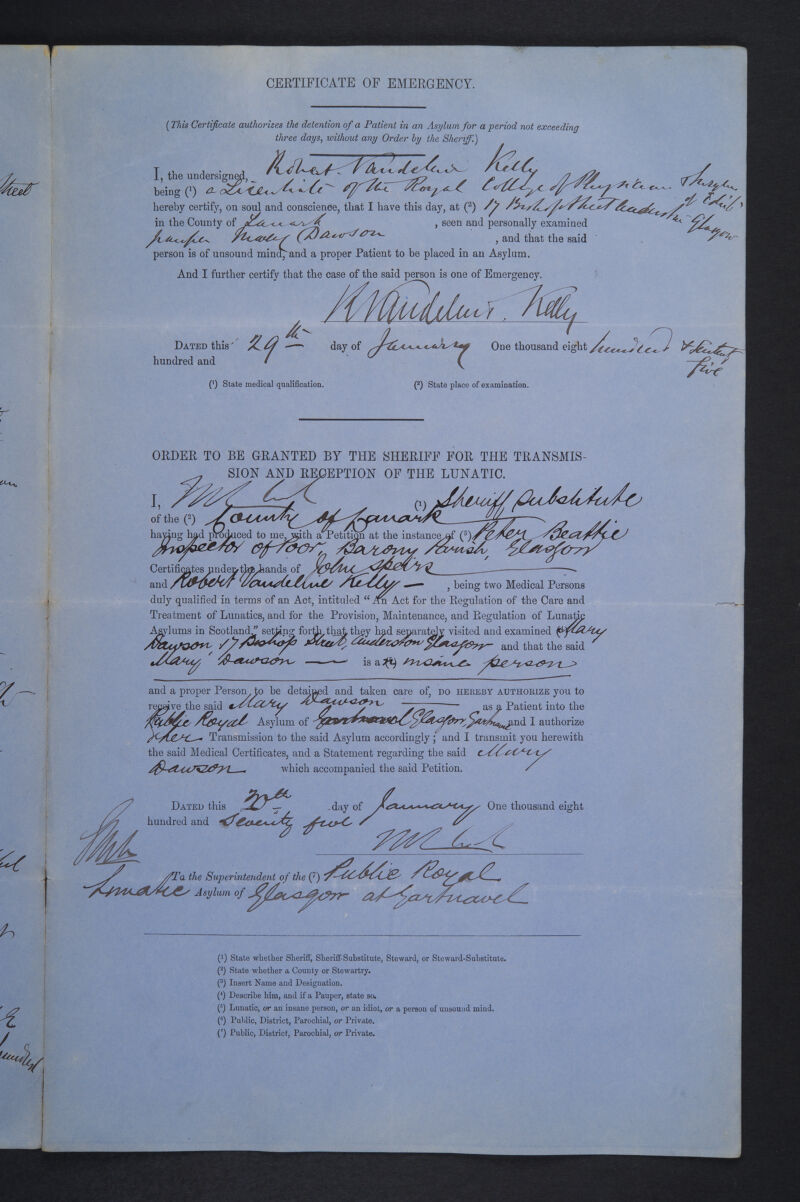 CERTIFICATE OF EMERGENCY.
(This Certificate authorizes the detention of a Patient in an Asylum for a period not exceeding
three days, without any Order by the Sheriff.)
I, the undersigned, Robert Vandeleur Kelly
being (¹) a Licentiate of the Royal College of Physicians & Surgeons of Edinb
hereby certify, on soul and conscience, that I have this day, at (²) 17 Bishop Street Anderston Glasgow
in the County of Lanark , seen and personally examined
pauper Mary Dawson , and that the said
person is of unsound mind, and a proper Patient to be placed in an Asylum.
And I further certify that the case of the said person is one of Emergency.
R Vandeleur Kelly
DATED this 29th day of January One thousand eight hundred & seventy
hundred and five
(¹) State medical qualification. (²) State place of examination.
ORDER TO BE GRANTED BY THE SHERIFF FOR THE TRANSMIS-
SION AND RECEPTION OF THE LUNATIC.
I, (¹) Sheriff Substitute
of the (²) County of Lanark
having had produced to me, with a Petition at the instance of (³) Peter Beattie
Inspector of Poor, Barony Parish, Glasgow
Certificates under the hands of John Spears
and Robert Vandeleur Kelly — , being two Medical Persons
duly qualified in terms of an Act, intituled “An Act for the Regulation of the Care and
Treatment of Lunatics, and for the Provision, Maintenance, and Regulation of Lunatic
Asylums in Scotland,” setting forth that they had separately visited and examined (⁴) Mary
Dawson, 17 Bishop Street, Anderston Glasgow and that the said
Mary Dawson — is a (⁵) insane person
and a proper Person to be detained and taken care of, DO HEREBY AUTHORIZE you to
receive the said Mary Dawson — as a Patient into the
Public Royal Asylum of Gartnavel Glasgow, Gartnavel and I authorize
her Transmission to the said Asylum accordingly; and I transmit you herewith
the said Medical Certificates, and a Statement regarding the said Mary
Dawson which accompanied the said Petition.
DATED this day of January One thousand eight
hundred and Seventy five
To the Superintendent of the (⁷) Public Royal
Lunatic Asylum of Glasgow at Gartnavel
(¹) State whether Sheriff, Sheriff-Substitute, Steward, or Steward-Substitute.
(²) State whether a County or Stewartry.
(³) Insert Name and Designation.
(⁴) Describe him, and if a Pauper, state so.
(⁵) Lunatic, or an insane person, or an idiot, or a person of unsound mind.
(⁶) Public, District, Parochial, or Private.
(⁷) Public, District, Parochial, or Private.